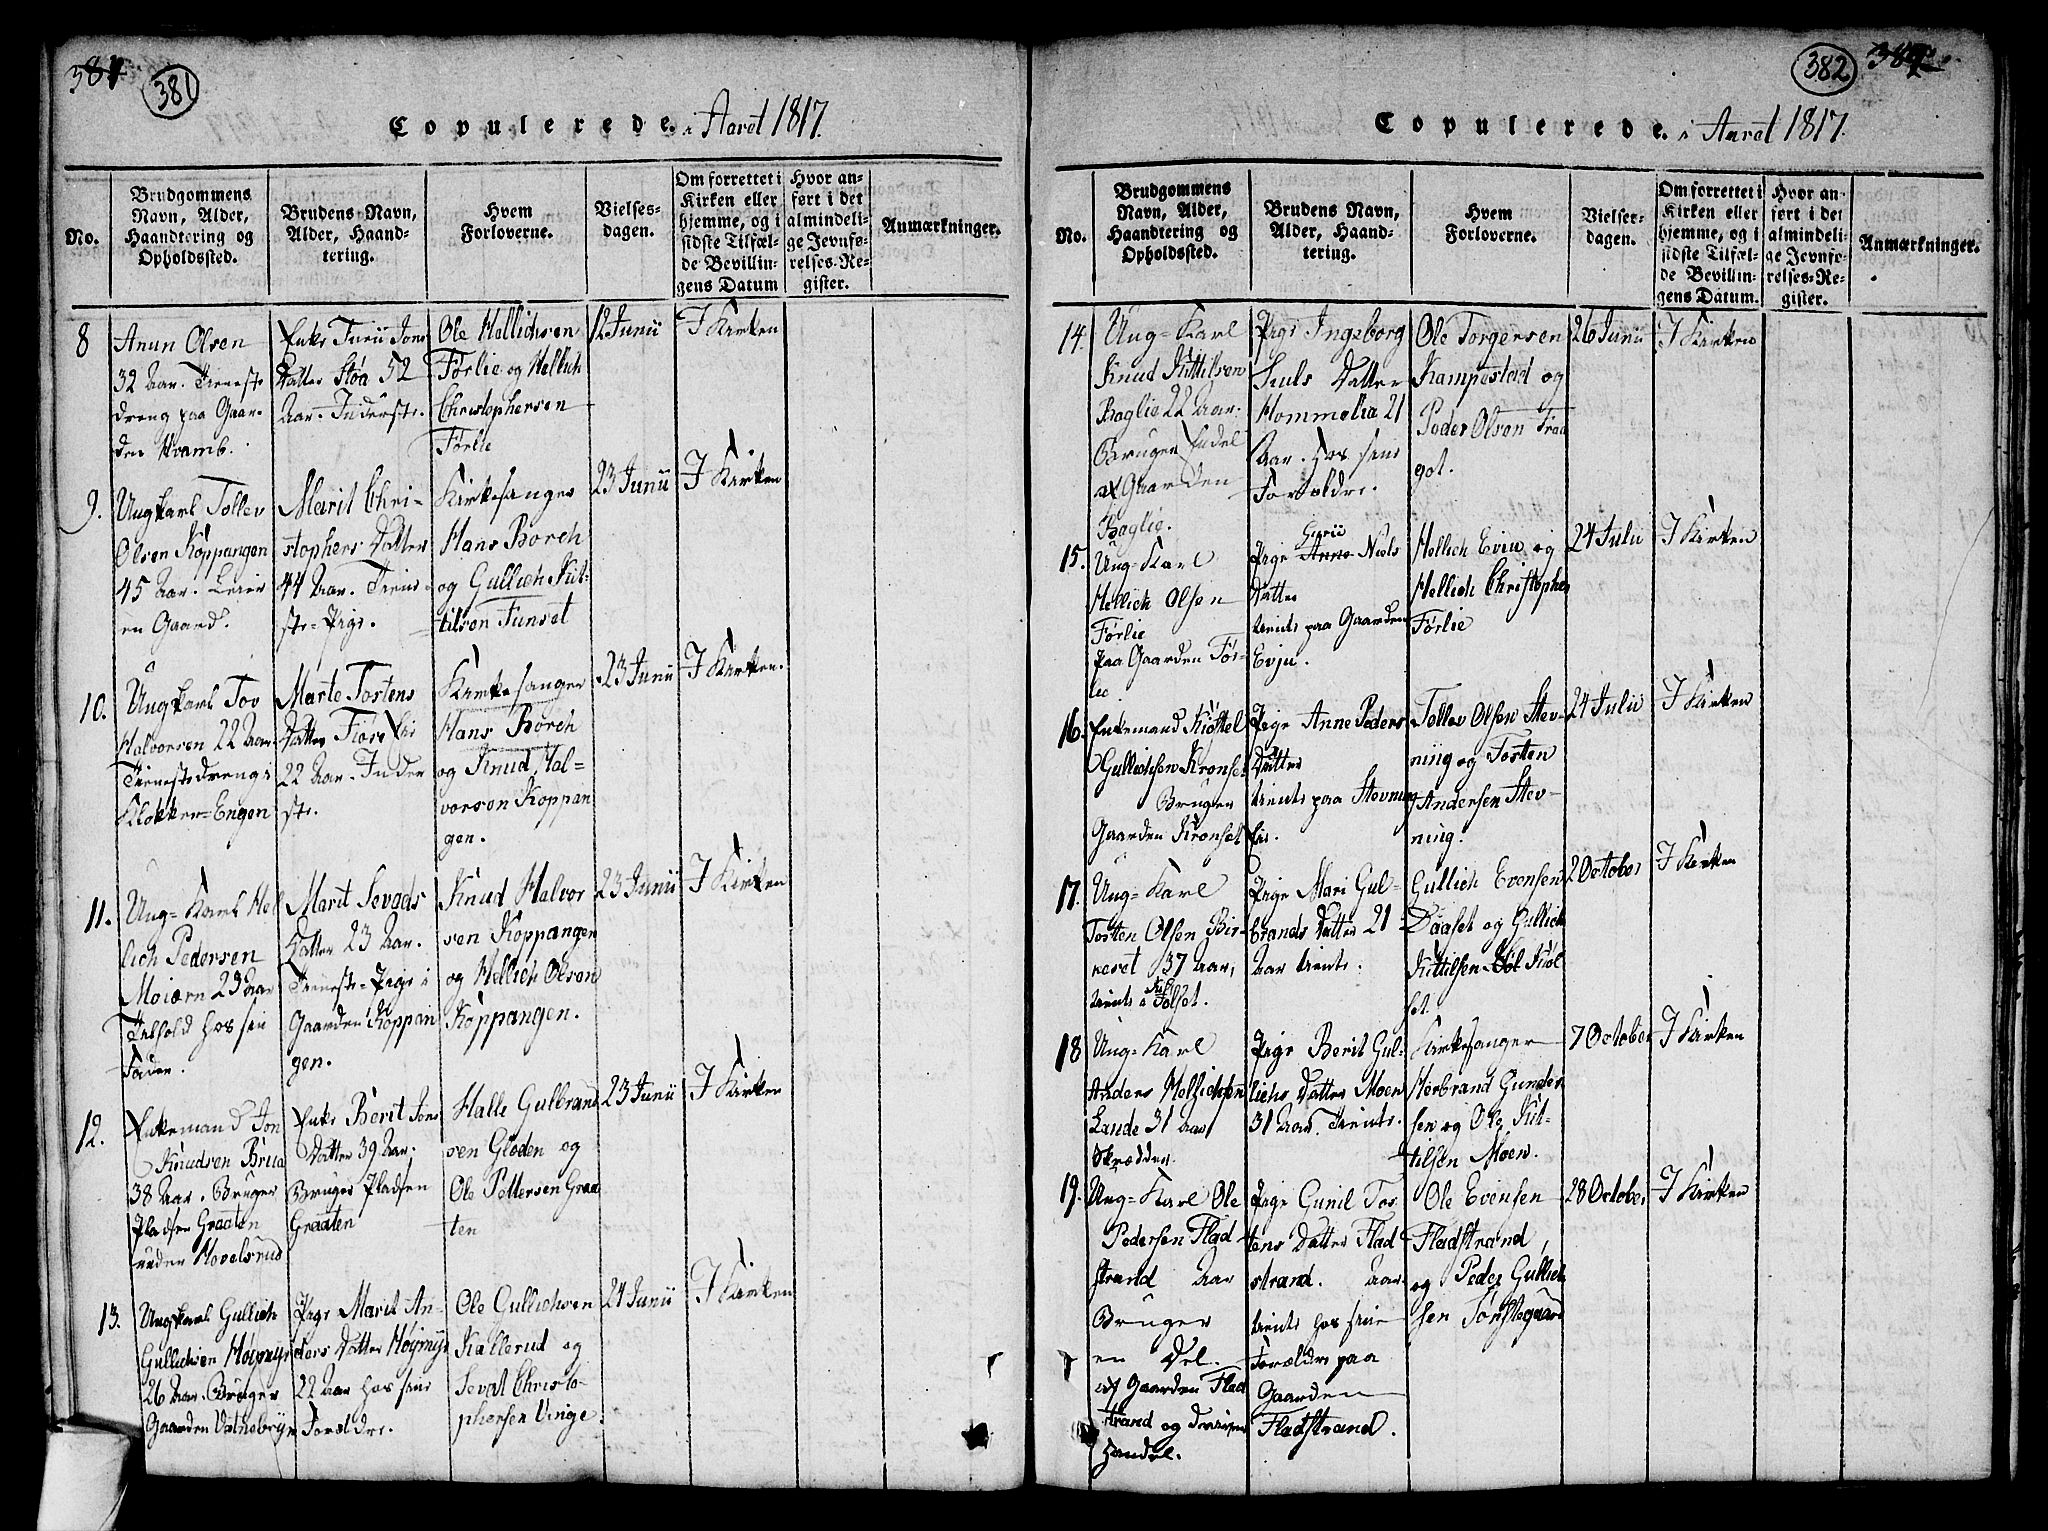 381
381
Copulerede. i Aaret 1817.
No.
Brudgommens
Navn, Alder,
Haandtering og
Opholdssted.
Brudens Navn,
Alder, Haand-
tering.
Hvem
Forloverne.
Vielses-
dagen.
Om forrettet i
Kirken eller
hjemme, og i
sidste Tilfæl-
de Bevillin-
gens Datum
Hvor an-
ført i det
almindeli-
ge Jevnfø-
relses-Re-
gister.
Anmærkninger.
8
Anun Olsen
32 Aar. Tieneste
dreng paa Gaar-
den Hvamb.
Enke Turii Jons
Datter Støa 52
Aar. Inderste.
Ole Hellichsen
Førlie og Hellich
Christophersen
Førlie
12 Junii
I Kirken
9.
Ungkarl Tollev
Olsen Koppangen
45 Aar. Leier
en Gaard.
Marit Chri-
stophers Datter
44 Aar. Tiene-
ste-Pige.
Kirkesanger
Hans Borch
og Gullich Kit-
tilsen Tunset
23 Junii
I Kirken
10.
Ungkarl Tov
Halvorsen 22 Aar.
Tienestedreng i
Klokker-Engen
Marte Tostens
Datter
22 Aar. Inder
ste.
Kirkesanger
Hans Borch
og Knud Hal-
vorsen Koppan
gen.
23 Junii
I Kirken.
11.
Ung-Karl Hel
lich Pedersen
Moiærn 23 Aar
Tilhold hos sin
Fader.
Marit Sevads
Datter 23 Aar.
Tieneste-Pige i
Gaarden Koppan
gen.
Knud Halvor
sen Koppangen
og Hellich Olsen
Koppangen.
23 Junii
I Kirken
12.
Enkemand Jon
Knudsen Brua
38 Aar. Bruger
Pladsen Graaten
under Hovelsrud
Enke Berit Jens
Datter 39 Aar.
Bruger Pladsen
Graaten
Halle Gulbrand
sen Gloden og
Ole Pettersen Graa
ten
23 Junii
I Kirken
13.
Ungkarl Gullich
Gullichsen Høymyr
26 Aar. Bruger
Gaarden Vatnebryn
Pige Marit An-
ders Datter Høymyr
22 Aar hos sine
Forældre.
Ole Gullichsen
Kallerud og
Sevat Christo-
phersen Vinge.
24 Junii
I Kirken
382
Copulerede. i Aaret 1817.
No.
Brudgommens
Navn, Alder,
Haandtering og
Opholdssted.
Brudens Navn,
Alder, Haand-
tering.
Hvem
Forloverne.
Vielser-
dagen.
Om forrettet i
Kirken eller
hjemme, og i
sidste Tilfæl-
de Bevillin-
gens Datum.
Hvor an-
ført i det
almindeli-
ge Jevnfø-
relses-Re-
gister.
Anmærkninger.
14.
Ung-Karl
Knud Kittilsen
Baglie 22 Aar.
Bruger Endel
af Gaarden
Baglie.
Pige Ingeborg
Juls Datter
Hommelia 21
Aar. Hos sine
Forældre.
Ole Torgersen
Kampestad og
Peder Olsen Traa
got.
26 Junii
I Kirken
15.
Ung-Karl
Hellich Olsen
Førlie
Paa Gaarden Før-
lie.
Pige Anne Niels
Datter
tient paa Gaarden
Evju.
Hellich Evju og
Hellich Christopher
Førlie
24 Julii
I Kirken
16.
Enkemand Kittel
Gullichsen Kronset
Bruger
Gaarden Kronset
Pige Anne Peders
Datter
tient paa Stevning
Eie.
Tollev Olsen Stev-
niing og Tosten
Andersen Stev-
ning.
24 Julii
I Kirken
17.
Ung-Karl
Tosten Olsen Bir-
keset 37 Aar,
tient i Tolset.
Pige Mari Gul-
brands Datter 21
Aar tient.
Gullich Evensen
Daaset og Gullich
Kittilsen Kiøl
set.
2 October
I Kirken
18
Ung-Karl
Anders Hellichsen
Lande 31 Aar
Skrædder.
Pige Berit Gul-
lichs Datter Moen
31 Aar. Tient.
Kirkesanger
Herbrand Gunder
sen og Ole Kit-
tilsen Moen.
7 October
I Kirken
19.
Ung-Karl Ole
Pedersen Flad-
strand Aar
Bruger
en Del.
af Gaarden Flad
strand og driver
Handel.
Pige Gunil Tos-
tens Datter Flad
strand. Aar.
tient hos sine
Forældre paa
Gaarden
Fladstrand.
Ole Evensen
Fladstrand,
og Peder Gullich
sen Tønstegaard
28 October
I Kirken